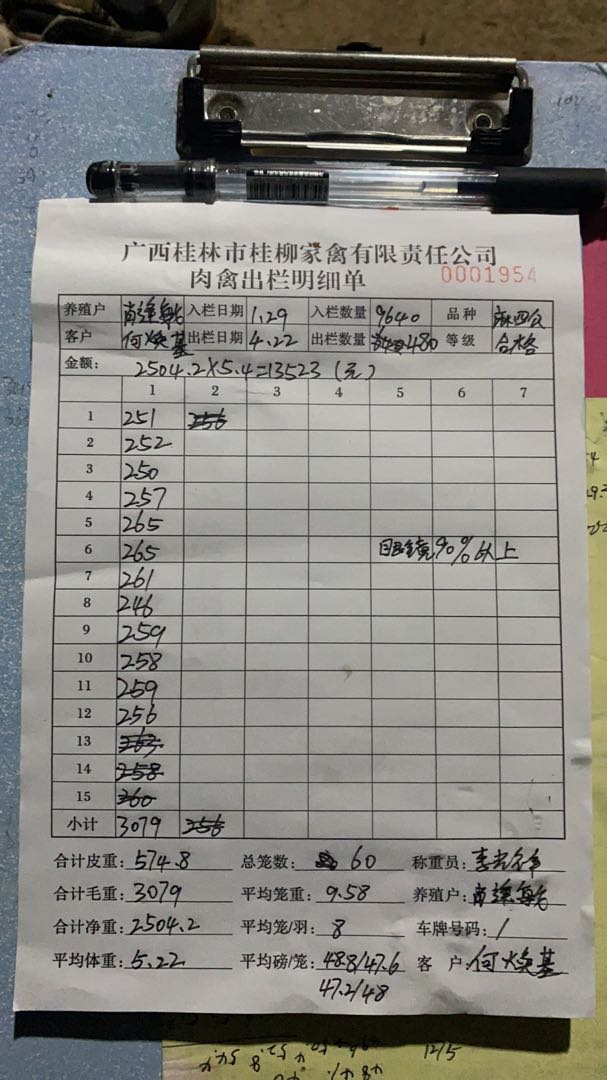 广西桂林市桂柳家禽有限责任公司
肉禽出栏明细单 0001954
养殖户 入栏日期 1.29 入栏数量 9640 品种
客户 何焕基 出栏日期 4.22 出栏数量 480 等级 合格
金额: 2504.2×5.4=13523(元)
1 2 3 4 5 6 7
1 251 256
2 252
3 250
4 257
5 265
6 265 眼镜90%以上
7 261
8 246
9 259
10 258
11 259
12 256
13 263
14 258
15 260
小计 3079 256
合计皮重: 574.8 总笼数: 60 称重员:
合计毛重: 3079 平均笼重: 9.58 养殖户:
合计净重: 2504.2 平均笼/羽: 8 车牌号码: /
平均体重: 5.22 平均磅/笼: 48.8/47.6 客 户: 何焕基
47.2/48